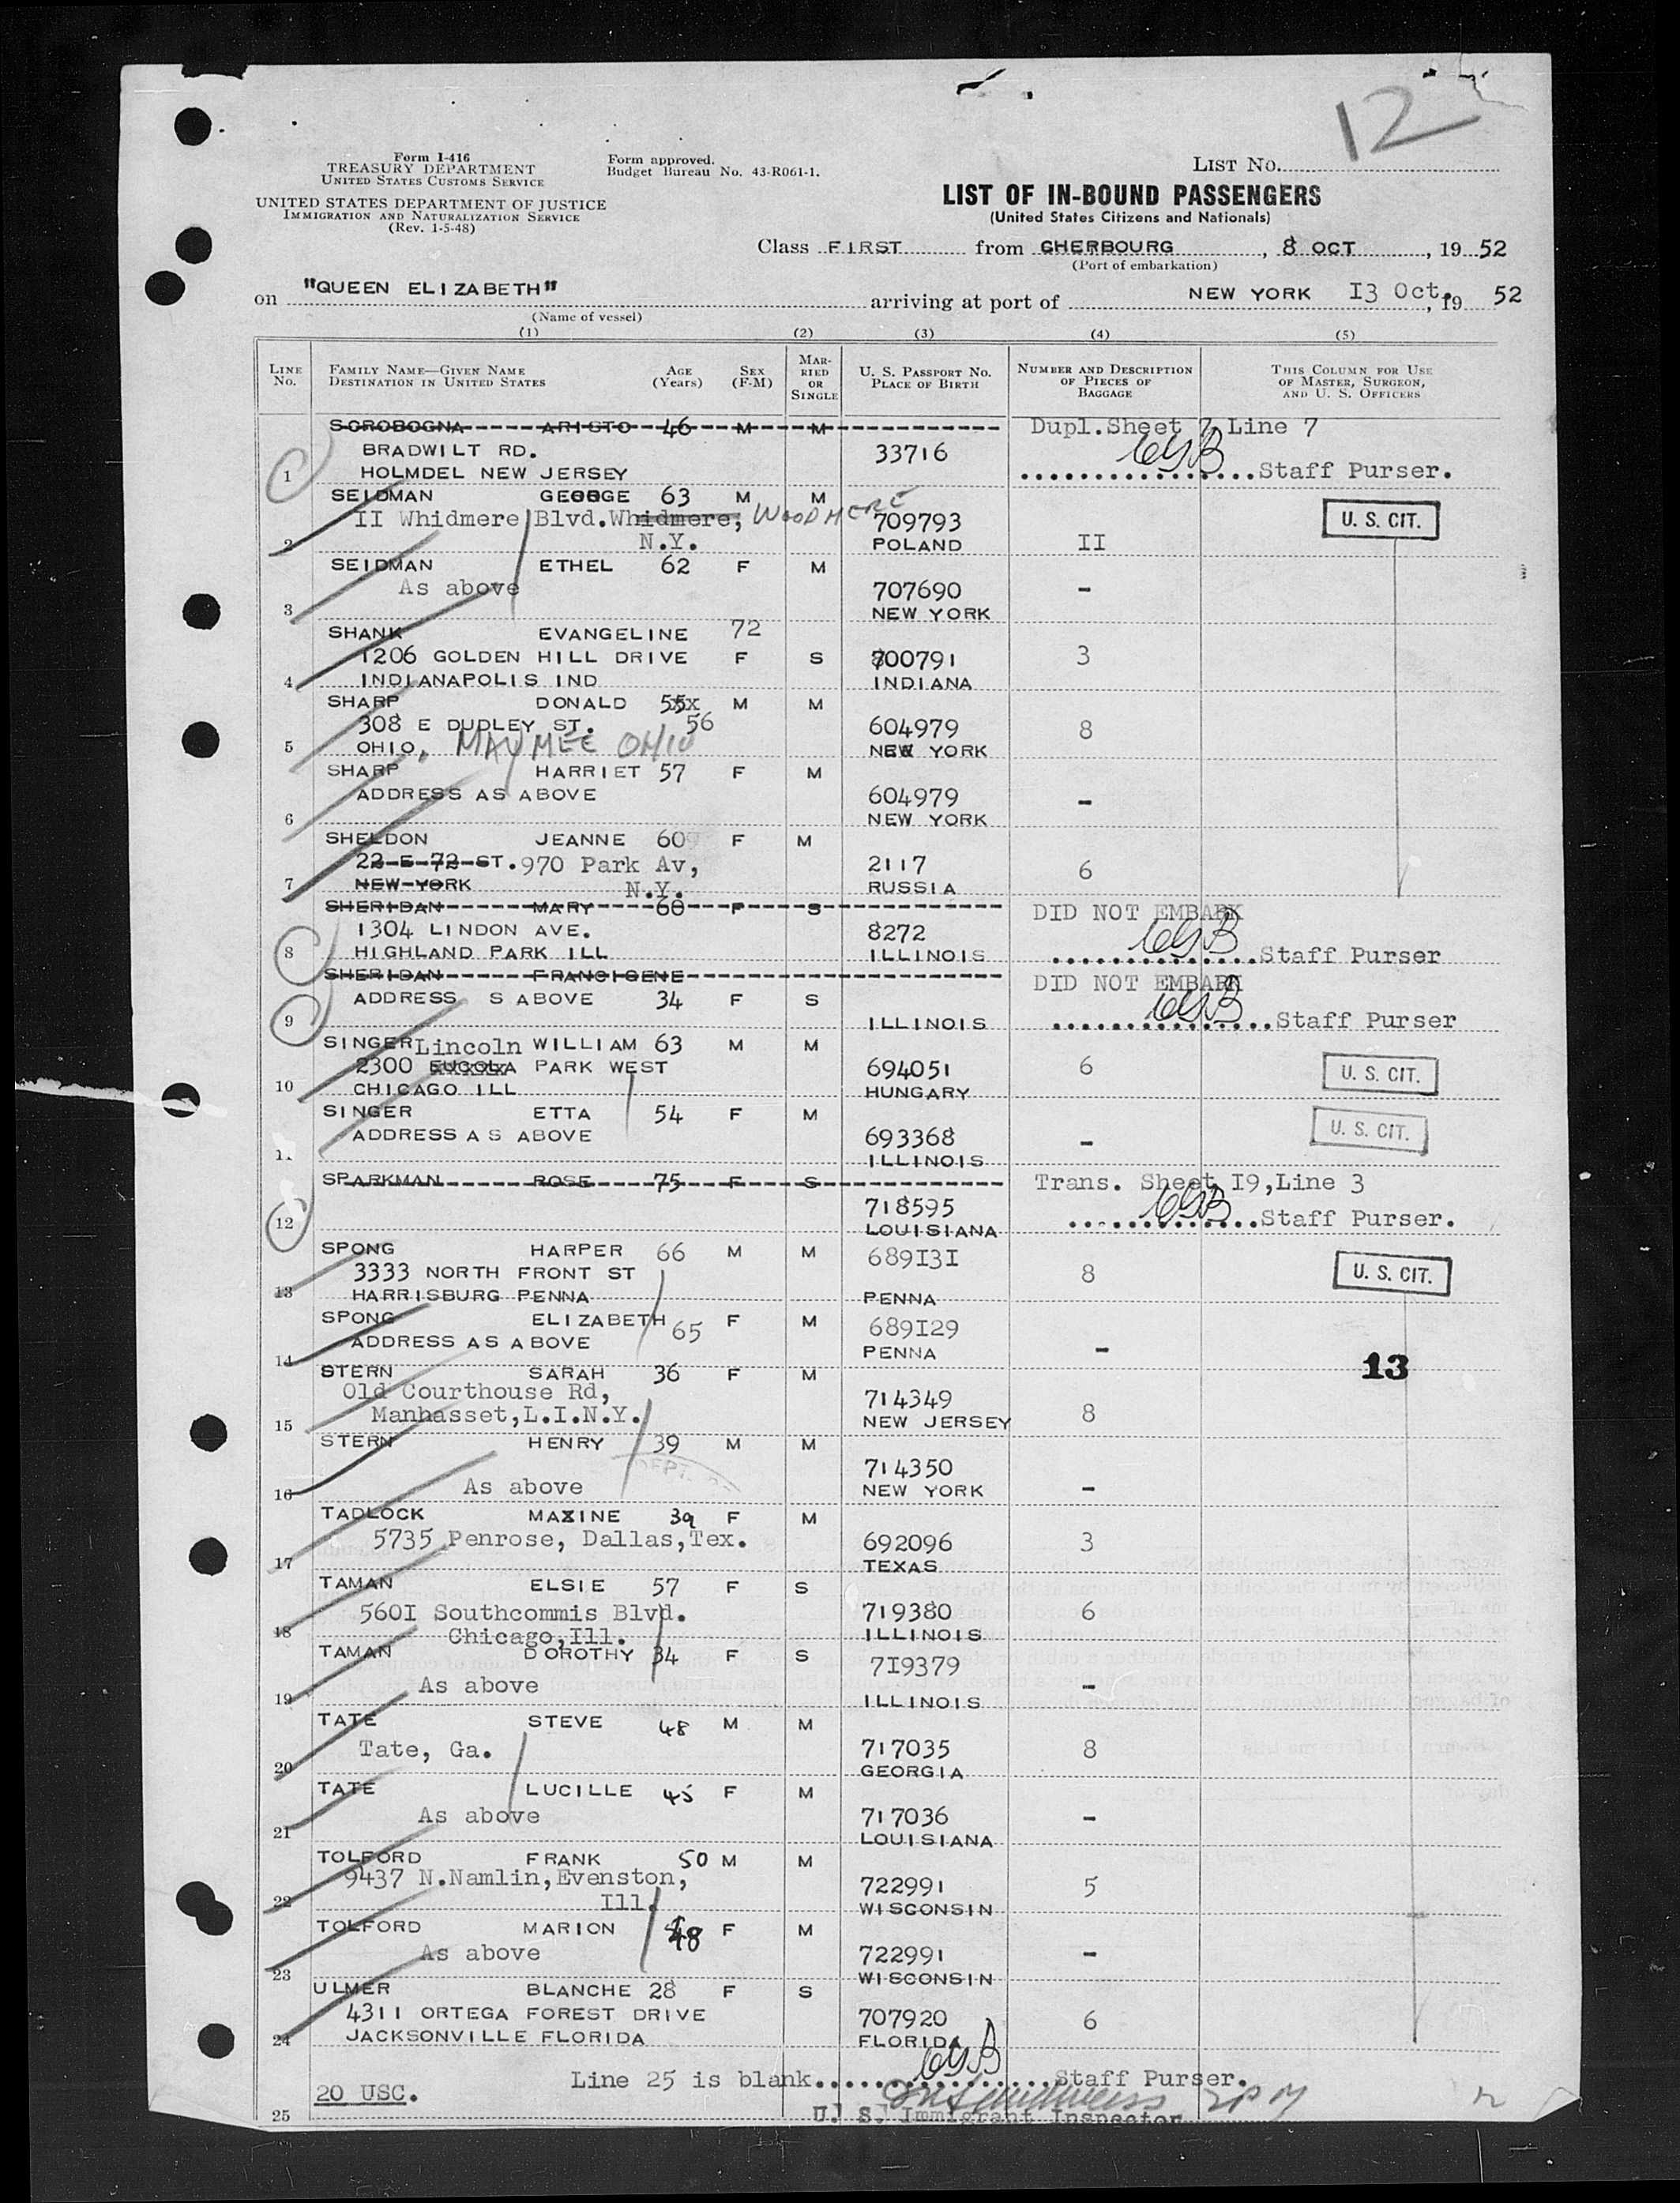 12
Form I-416
TREASURY DEPARTMENT
UNITED STATES CUSTOMS SERVICE
UNITED STATES DEPARTMENT OF JUSTICE
IMMIGRATION AND NATURALIZATION SERVICE
(Rev. 1-5-48)
Form approved.
Budget Bureau No. 43-R061-1.
LIST NO.
LIST OF IN-BOUND PASSENGERS
(United States Citizens and Nationals)
Class FIRST from CHERBOURG, 8 OCT, 1952
(Port of embarkation)
on "QUEEN ELIZABETH" arriving at port of NEW YORK I3 Oct., 19 52
(Name of vessel)
(1) (2) (3) (4) (5)
LINE NO. FAMILY NAME—GIVEN NAME DESTINATION IN UNITED STATES AGE (Years) SEX (F-M) MARRIED OR SINGLE U. S. PASSPORT NO. PLACE OF BIRTH NUMBER AND DESCRIPTION OF PIECES OF BAGGAGE THIS COLUMN FOR USE OF MASTER, SURGEON, AND U. S. OFFICERS
SCROBOGNA ARISTO 46 M M Dupl.Sheet 7 Line 7
BRADWILT RD. 33716
1 HOLMDEL NEW JERSEY Staff Purser.
SEIDMAN GEORGE 63 M M
II Whidmere Blvd.Whidmere, WOODMERE 709793 U. S. CIT.
2 N.Y. POLAND II
SEIDMAN ETHEL 62 F M
As above 707690 -
3 NEW YORK
SHANK EVANGELINE 72
1206 GOLDEN HILL DRIVE F S 700791 3
4 INDIANAPOLIS IND INDIANA
SHARP DONALD 55xx M M
308 E DUDLEY ST. 56 604979 8
5 OHIO, MAUMEE OHIO NEW YORK
SHARP HARRIET 57 F M
ADDRESS AS ABOVE 604979 -
6 NEW YORK
SHELDON JEANNE 60 F M
22 E 72 ST. 970 Park Av, 2117 6
7 NEW YORK N.Y. RUSSIA
SHERIDAN MARY 60 F S DID NOT EMBARK
1304 LINDON AVE. 8272
8 HIGHLAND PARK ILL ILLINOIS Staff Purser
SHERIDAN FRANCIGENE DID NOT EMBARK
ADDRESS S ABOVE 34 F S
9 ILLINOIS Staff Purser
SINGER Lincoln WILLIAM 63 M M
2300 PARK WEST 694051 6 U. S. CIT.
10 CHICAGO ILL HUNGARY
SINGER ETTA 54 F M
ADDRESS AS ABOVE 693368 - U. S. CIT.
11 ILLINOIS
SPARKMAN ROSE 75 F S Trans. Sheet I9,Line 3
718595
12 LOUISIANA Staff Purser.
SPONG HARPER 66 M M 689I3I
3333 NORTH FRONT ST 8 U. S. CIT.
13 HARRISBURG PENNA PENNA
SPONG ELIZABETH 65 F M 689I29
14 ADDRESS AS ABOVE PENNA -
13
STERN SARAH 36 F M
Old Courthouse Rd, 714349
15 Manhasset,L.I.N.Y. NEW JERSEY 8
STERN HENRY 39 M M
714350
16 As above NEW YORK -
TADLOCK MAXINE 39 F M
5735 Penrose, Dallas,Tex. 692096 3
17 TEXAS
TAMAN ELSIE 57 F S
560I Southcommis Blvd. 719380 6
18 Chicago,Ill. ILLINOIS
TAMAN DOROTHY 34 F S 7I9379
19 As above ILLINOIS -
TATE STEVE 48 M M
Tate, Ga. 717035 8
20 GEORGIA
TATE LUCILLE 45 F M
As above 717036 -
21 LOUISIANA
TOLFORD FRANK 50 M M
9437 N.Namlin,Evenston, 722991 5
22 Ill. WISCONSIN
TOLFORD MARION 48 F M
As above 722991 -
23 WISCONSIN
ULMER BLANCHE 28 F S
4311 ORTEGA FOREST DRIVE 707920 6
24 JACKSONVILLE FLORIDA FLORIDA
Line 25 is blank Staff Purser.
20 USC.
25 U. S. Immigrant Inspector